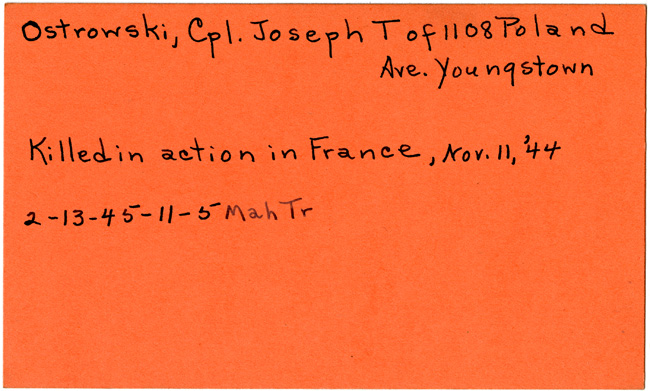 Ostrowski, Cpl. Joseph T of 1108 Poland
Ave. Youngstown
Killed in action in France, Nov. 11, '44
2-13-45-11-5 Mah Tr